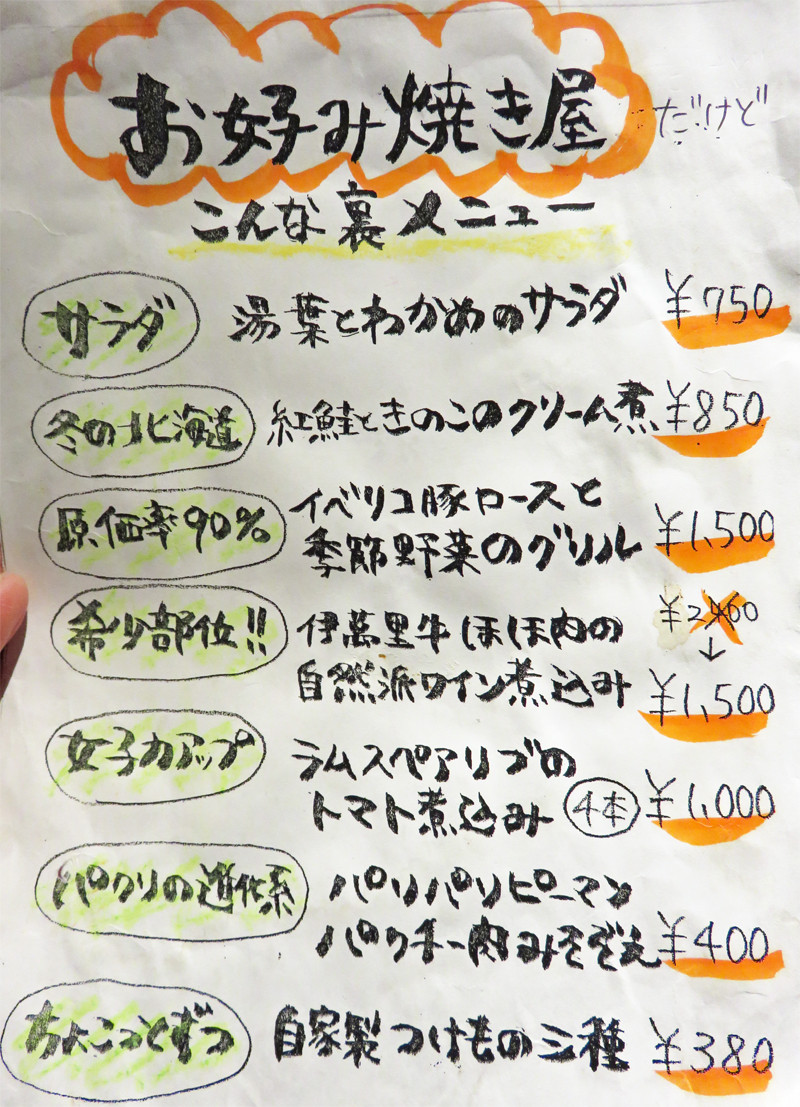 お好み焼き屋 だけど
こんな裏メニュー
サラダ 湯葉とわかめのサラダ ¥750
冬の北海道 紅鮭ときのこのクリーム煮 ¥850
原価率90% イベリコ豚ロースと
季節野菜のグリル ¥1,500
希少部位!! 伊萬里牛ほほ肉の ¥2460
↓
自然派ワイン煮込み ¥1,500
女子力アップ ラムスペアリブの
トマト煮込み 4本 ¥1,000
パクリの進化系 パリパリピーマン
パクチー肉みそぞえ ¥400
ちょこっとずつ 自家製つけもの三種 ¥380